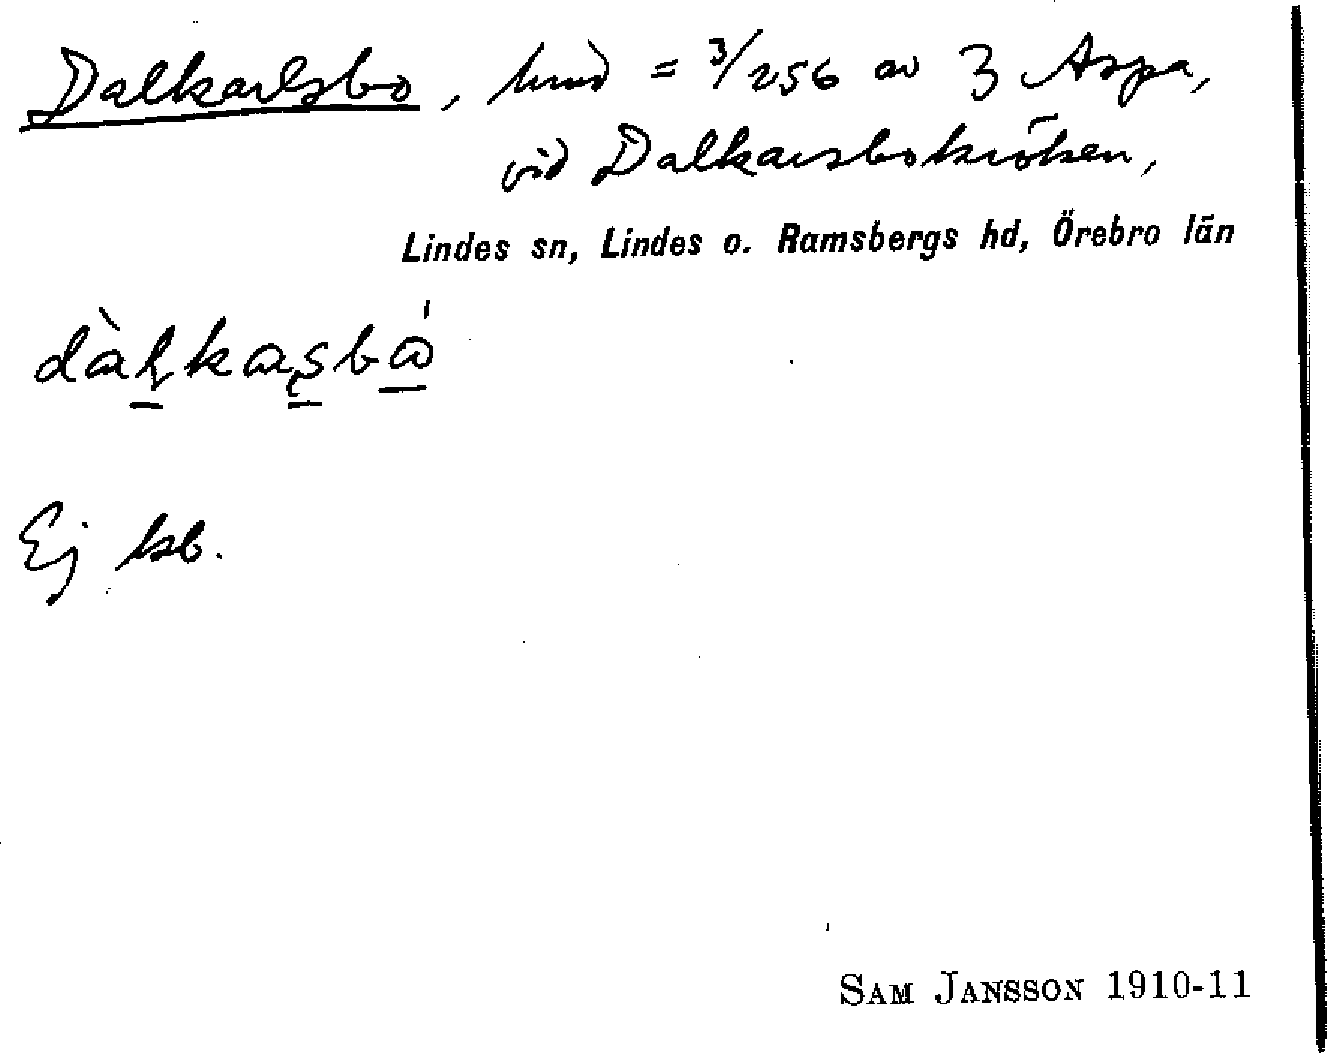 Dalkarlsbo, hmd = 3/256 av 3 Aspa,
vid Dalkarsbokröken,
Lindes sn, Lindes o. Ramsbergs hd, Örebro län
Ej kb.
SAM JANSSON 1910-11